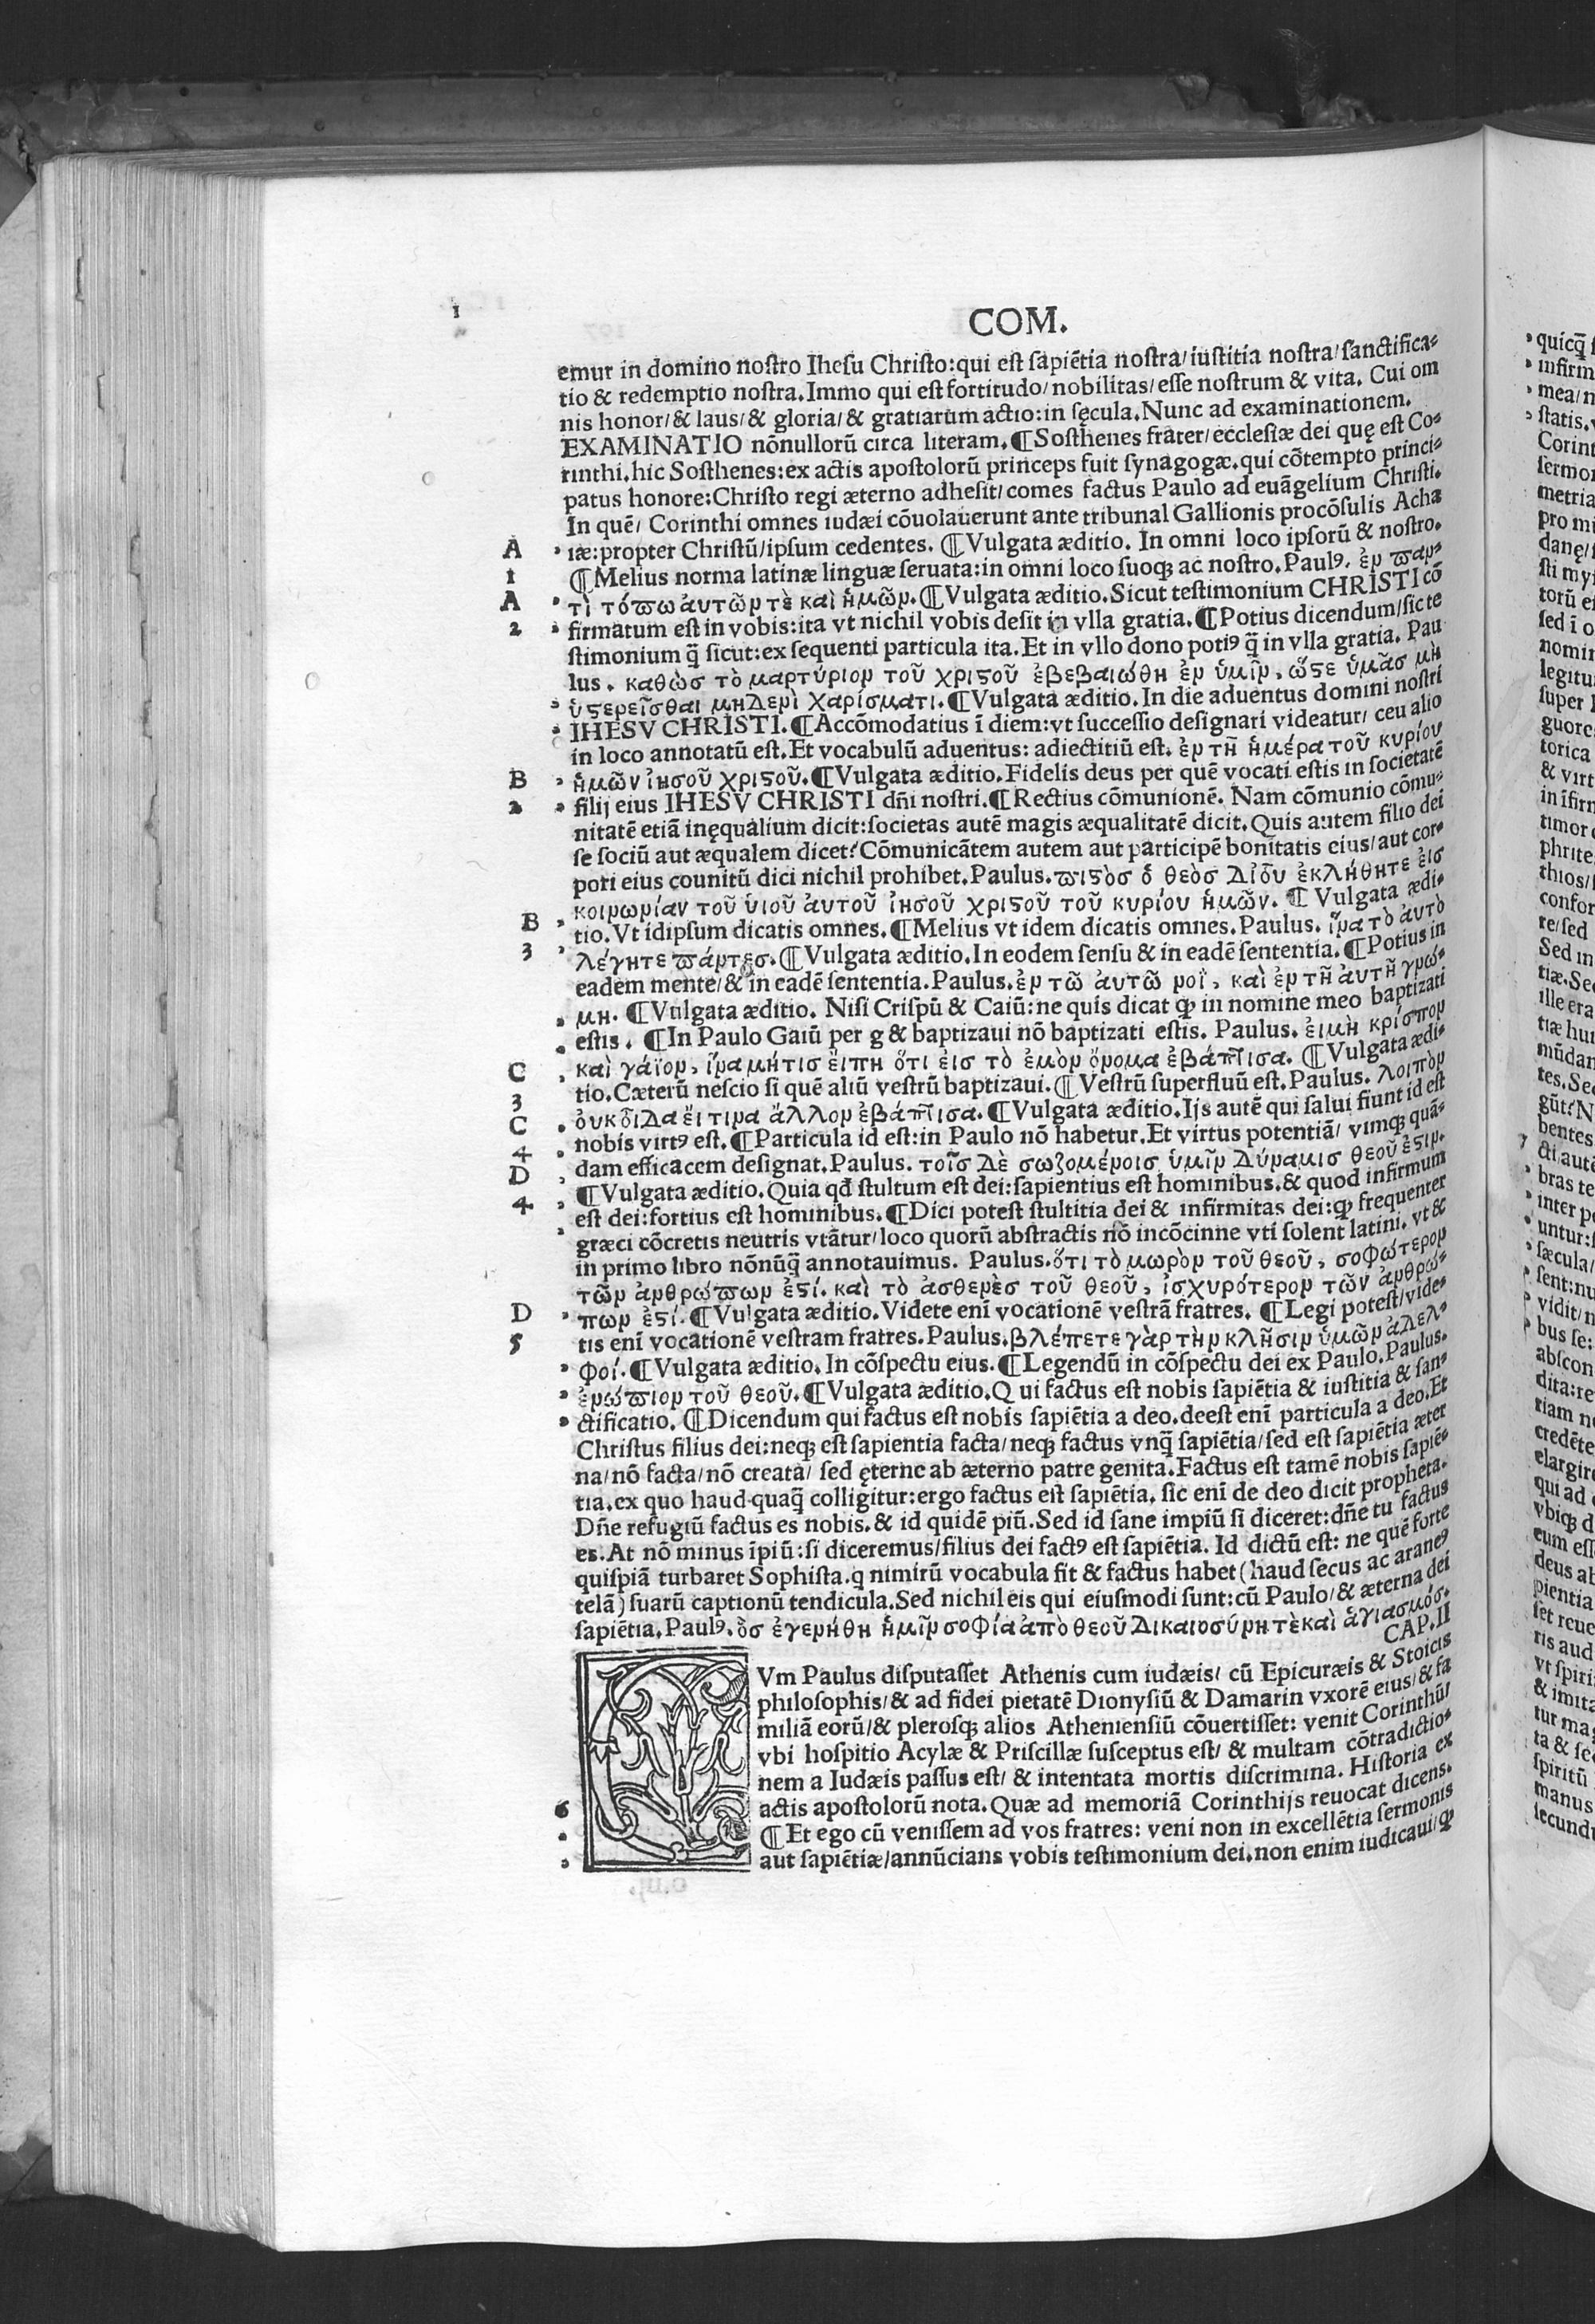 1
COM.
emur in domino noſtro Iheſu Chriſto:qui eſt ſapiẽtia noſtra/iuſtitia noſtra/ſanctifica⸗
tio & redemptio noſtra.Immo qui eſt fortitudo/nobilitas/eſſe noſtrum & vita. Cui om
nis honor/& laus/& gloria/& gratiarum actio:in ſęcula.Nunc ad examinationem.
EXAMINATIO nõnullorũ circa literam.¶Soſthenes frater/eccleſiæ dei quę eſt Co⸗
rinthi.hic Soſthenes:ex actis apoſtolorũ princeps fuit ſynagogæ.qui cõtempto princi⸗
patus honore:Chriſto regi æterno adheſit/comes factus Paulo ad euãgelium Chriſti.
In quẽ/ Corinthi omnes iudæi cõuolauerunt ante tribunal Gallionis procõſulis Acha
A iæ:propter Chriſtũ/ipſum cedentes. ¶Vulgata æditio. In omni loco ipſorũ & noſtro.
1 ¶Melius norma latinæ linguæ ſeruata:in omni loco ſuoq; ac noſtro.Paulꝰ. ἐν παν⸗
A τὶ τόπω ἀυτῶν τὲ καὶ ἡμῶν.¶Vulgata æditio.Sicut teſtimonium CHRISTI cõ
2 firmatum eſt in vobis:ita vt nichil vobis deſit in vlla gratia.¶Potius dicendum/ſic te
ſtimonium q̃ ſicut:ex ſequenti particula ita.Et in vllo dono potiꝰ q̃ in vlla gratia. Pau
lus. καθὼσ τὸ μαρτύριον τοῦ χριϛοῦ ἐβεβαιώθη ἐν ὑμῖν, ὥϛε ὑμᾶσ μὴ
ὑϛερεῖσθαι μηδενὶ χαρίσματι.¶Vulgata æditio.In die aduentus domini noſtri
IHESV CHRISTI.¶Accõmodatius ĩ diem:vt ſucceſſio deſignari videatur/ ceu alio
in loco annotatũ eſt.Et vocabulũ aduentus: adiectitiũ eſt. ἐν τῆ ἡμέρα τοῦ κυρίου
B ἡμῶν ἰησοῦ χριϛοῦ.¶Vulgata æditio.Fidelis deus per quẽ vocati eſtis in ſocietatẽ
2 filij eius IHESV CHRISTI dñi noſtri.¶Rectius cõmunionẽ. Nam cõmunio cõmu⸗
nitatẽ etiã inęqualium dicit:ſocietas autẽ magis æqualitatẽ dicit.Quis autem filio dei
ſe ſociũ aut æqualem dicet?Cõmunicãtem autem aut participẽ bonitatis eius/aut cor⸗
pori eius counitũ dici nichil prohibet.Paulus.πιϛὸσ ὁ θεὸσ δἰοὗ ἐκλήθητε ἐισ
κοινωνίαν τοῦ ὑιοῦ ἀυτοῦ ἰησοῦ χριϛοῦ τοῦ κυρίου ἡμῶν. ¶ Vulgata ædi⸗
B tio.Vt idipſum dicatis omnes.¶Melius vt idem dicatis omnes.Paulus. ἵνα τὸ ἀυτὸ
3 λέγητε πάντεσ.¶Vulgata æditio.In eodem ſenſu & in eadẽ ſententia.¶Potius in
eadem mente/& in eadẽ ſententia.Paulus.ἐν τῶ ἀυτῶ νοῒ, καὶ ἐν τῆ ἀυτῆ γνώ⸗
μη. ¶Vulgata æditio. Niſi Criſpũ & Caiũ:ne quis dicat ꝙ in nomine meo baptizati
eſtis. ¶In Paulo Gaiũ per g & baptizaui nõ baptizati eſtis. Paulus. ἐιμὴ κρίσπον
C καὶ γάϊον, ἵνα μήτισ ἔιπη ὅτι ἐισ τὸ ἐμὸν ὄνομα ἐβάπτισα. ¶Vulgata ædi⸗
tio.Cæterũ neſcio ſi quẽ aliũ veſtrũ baptizaui.¶Veſtrũ ſuperfluũ eſt.Paulus. λοιπὸν
3 ὀυκδιδα ἔι τινα ἄλλον ἐβάπτισα.¶Vulgata æditio.Ijs autẽ qui ſalui fiunt id eſt
C nobis virtꝰ eſt.¶Particula id eſt:in Paulo nõ habetur.Et virtus potentiã/ vimq; quã⸗
4 dam efficacem deſignat.Paulus. τοῖσ δὲ σωζομένοισ ὑμῖν δύναμισ θεοῦ ἐϛιν.
D ¶Vulgata æditio.Quia qđ ſtultum eſt dei:ſapientius eſt hominibus.& quod infirmum
4 eſt dei:fortius eſt hominibus.¶Dici poteſt ſtultitia dei & infirmitas dei:ꝙ frequenter
græci cõcretis neutris vtãtur/loco quorũ abſtractis nõ incõcinne vti ſolent latini. vt &
in primo libro nõnũq̃ annotauimus. Paulus.ὅτι τὸ μωρὸν τοῦ θεοῦ, σοφώτερον
τῶν ἀνθρώπων ἐϛί. καὶ τὸ ἀσθενὲσ τοῦ θεοῦ, ἰσχυρότερον τῶν ἀνθρώ⸗
D πων ἐϛί.¶Vulgata æditio.Videte enĩ vocationẽ veſtrã fratres. ¶Legi poteſt/vide⸗
5 tis enĩ vocationẽ veſtram fratres.Paulus.βλέπετε γὰρ τὴν κλῆσιν ὑμῶν ἀδελ⸗
φοί.¶Vulgata æditio.In cõſpectu eius.¶Legendũ in cõſpectu dei ex Paulo.Paulus.
ἐνώπιον τοῦ θεοῦ.¶Vulgata æditio.Qui factus eſt nobis ſapiẽtia & iuſtitia & ſan⸗
ctificatio.¶Dicendum qui factus eſt nobis ſapiẽtia a deo.deeſt enĩ particula a deo.Et
Chriſtus filius dei:neq; eſt ſapientia facta/neq; factus vnq̃ ſapiẽtia/ſed eſt ſapiẽtia æter
na/nõ facta/nõ creata/ ſed ęterne ab æterno patre genita.Factus eſt tamẽ nobis ſapiẽ⸗
tia.ex quo haud quaq̃ colligitur:ergo factus eſt ſapiẽtia. ſic enĩ de deo dicit propheta.
Dñe refugiũ factus es nobis.& id quidẽ piũ.Sed id ſane impiũ ſi diceret:dñe tu factus
es.At nõ minus ĩpiũ:ſi diceremus/filius dei factꝰ eſt ſapiẽtia. Id dictũ eſt: ne quẽ forte
quiſpiã turbaret Sophiſta.q nimirũ vocabula fit & factus habet (haud ſecus ac araneꝰ
telã) ſuarũ captionũ tendicula.Sed nichil eis qui eiuſmodi ſunt:cũ Paulo/& æterna dei
ſapiẽtia.Paulꝰ. ὃσ ἐγενήθη ἡμῖν σοφία ἀπὸ θεοῦ δικαιοσύνη τὲ καὶ ἁγιασμόσ.
CAP.II
CVm Paulus diſputaſſet Athenis cum iudæis/ cũ Epicuræis & Stoicis
philoſophis/& ad fidei pietatẽ Dionyſiũ & Damarin vxorẽ eius/& fa
miliã eorũ/& pleroſq; alios Athenienſiũ cõuertiſſet: venit Corinthũ/
vbi hoſpitio Acylæ & Priſcillæ ſuſceptus eſt/ & multam cõtradictio⸗
nem a Iudæis paſſus eſt/ & intentata mortis diſcrimina. Hiſtoria ex
6 actis apoſtolorũ nota.Quæ ad memoriã Corinthijs reuocat dicens.
¶Et ego cũ veniſſem ad vos fratres: veni non in excellẽtia ſermonis
aut ſapiẽtiæ/annũcians vobis teſtimonium dei.non enim iudicaui/ꝙ